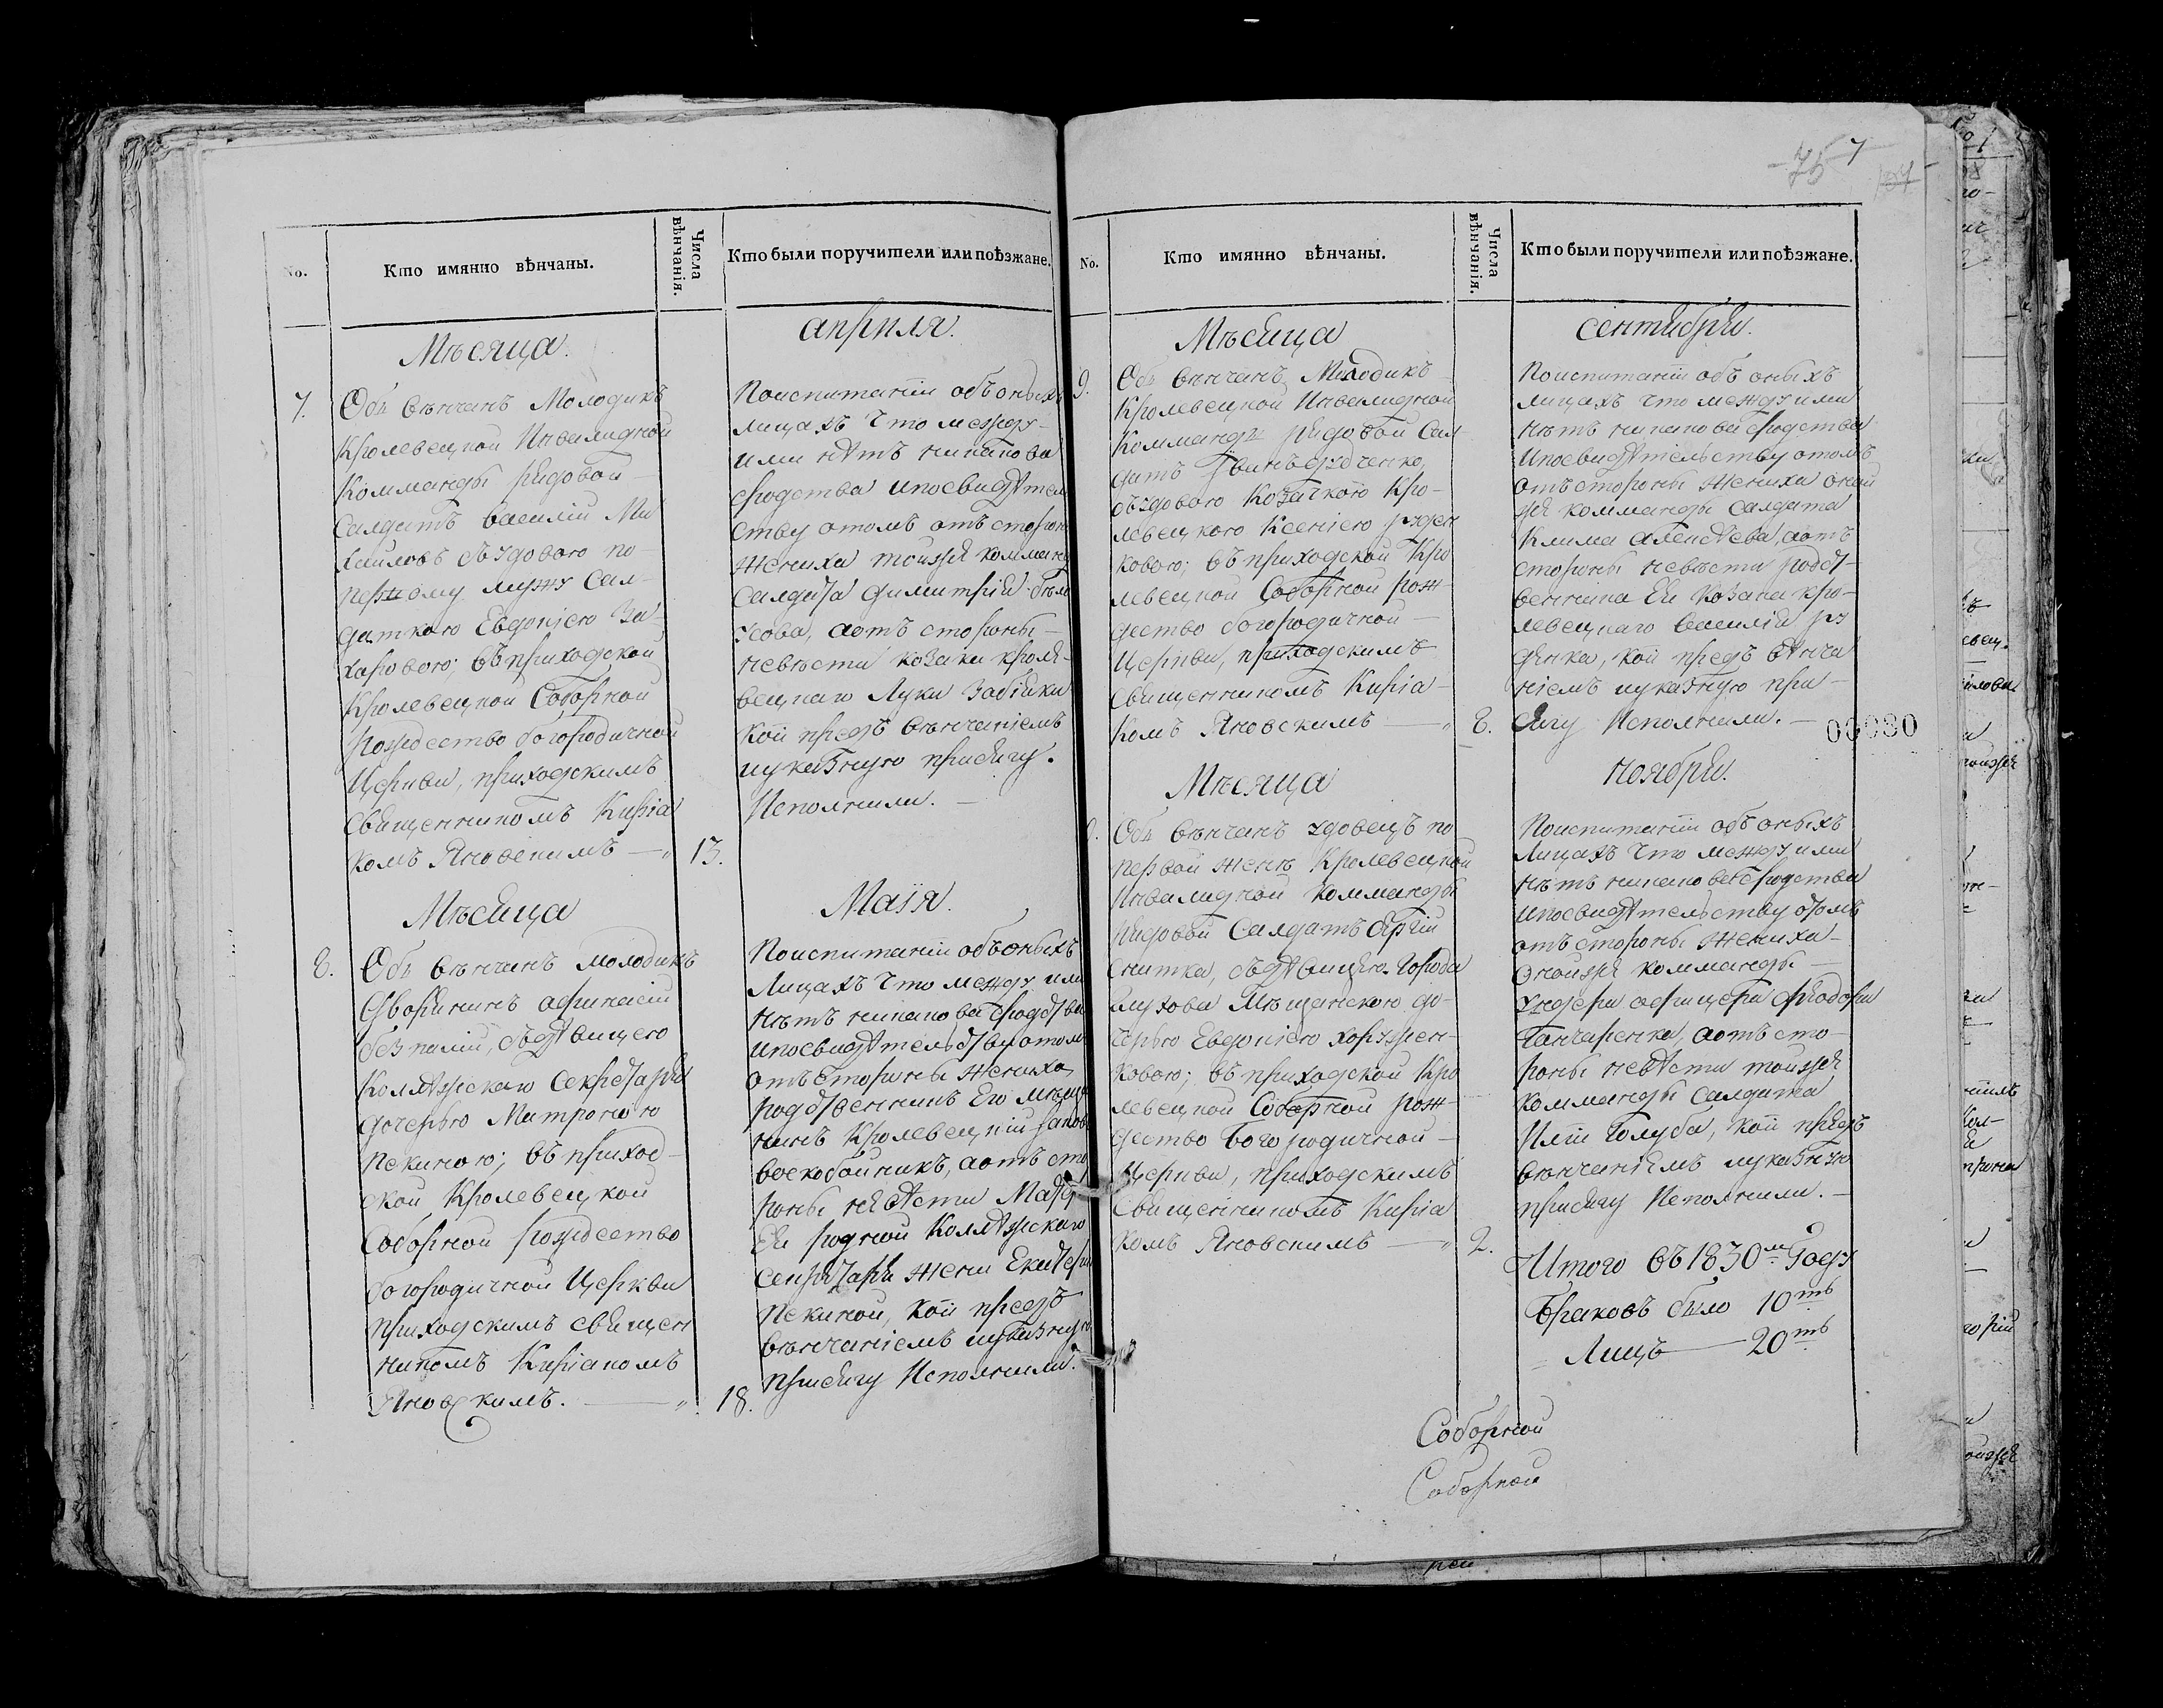 75 7
No.
Кто имянно вѣнчаны.
Числа вѣнчанія.
Кто были поручители или поѣзжане.
Мѣсяца
априля.
7.
Обвѣнчанъ Молодикъ
Кролевецкой Инвалидной
Комманды рядовой
Салдатъ Василій Ми
хайловъ съ удовою по
первому мужу Сал-
даткою Евдокіею За-
харовою; въ приходской
Кролевецкой Соборной
Рождество богородичной
Церкви, приходскимъ
Священникомъ Киріа
комъ Яновскимъ — 13.
По испитаніи объ оныхъ
лицахъ что между
ими нѣтъ никакова
сродства и по свидѣтел
ству отомъ отъ сторон
жениха тойже команд
Салдата Димитрія
усова, а отъ стороны
невѣсти козака кроле-
вецкаго Луки Забіяки
кои предъ вѣнчаніемъ
и указную присягу
Исполнили.
Мѣсяца
Маія.
8.
Обвѣнчанъ молодикъ
Дворянинъ Афанасій
безпалій, съ дѣвицею
Коллѣжскаго Секретаря
дочерью Матроною
Пекиною; въ приход-
ской Кролевецкой
Соборной рождество
богородичной Церкви
приходскимъ священ
никомъ Киріакомъ
Яновскимъ. — 18.
По испитаніи объ оныхъ
Лицахъ что между ими
нѣтъ никакова сродства
и по свидѣтельству отом
отъ стороны жениха
родственникъ Его мѣща
нинъ Кролевецкій Яков
воскобойникъ, а отъ сто
роны невѣсти
Ея родной Коллѣжскаго
Секретаря жени Екатери
Пекиной, кои предъ
вѣнчаніемъ и указную
присягу Исполнили.
No.
Кто имянно вѣнчаны.
Числа вѣнчанія.
Кто были поручители или поѣзжане.
Мѣсяца
сентября.
9.
Обвѣнчанъ Молодикъ
Кролевецкой Инвалидной
Комманды рядовой Сал
датъ
съ удовою Козачкою Кро-
левецкого Ксеніею руден
ковою; въ приходской Кро
левецкой Соборной рож-
дество богородичной
Церкви, приходскимъ
Священникомъ Киріа
комъ Яновскимъ — 8.
По испитаніи объ оныхъ
лицахъ что между ими
нѣтъ никакова сродства
и по свидѣтельству отомъ
отъ стороны жениха оной
же комманды салдата
Клима алексѣева, а отъ
стороны невѣсти родст-
венника Ея Козака кро-
левецкаго Василія ру
денка, кои предъ вѣнча
ніемъ и указную при-
сягу Исполнили.
00080
Мѣсяца
ноября.
Обвѣнчанъ удовецъ по
первой женѣ Кролевецкой
Инвалидной комманды
рядовой Салдатъ Сергій
Снитка, съ дѣвицею Города
Глухова Мѣщанскою до-
черью Евдокіею Хоружен-
ковою; въ приходской Кро
левецкой Соборной рож-
дество Богородичной
Церкви, приходскимъ
Священникомъ Киріа
комъ Яновскимъ — 2.
По испитаніи объ оныхъ
Лицахъ что между ими
нѣтъ никакова сродства
и по свидѣтельству отомъ
отъ стороны жениха
онойже комманды
ундеръ афицера Феодора
Ганчаренка, а отъ сто-
роны невѣсти тойже
комманды Салдата
Иліи Голуба, кои предъ
вѣнчаніемъ и указную
присягу Исполнили.
Итого въ 1830м Году
браковъ было 10ть
Лицъ — 20ть
Соборной
Соборной